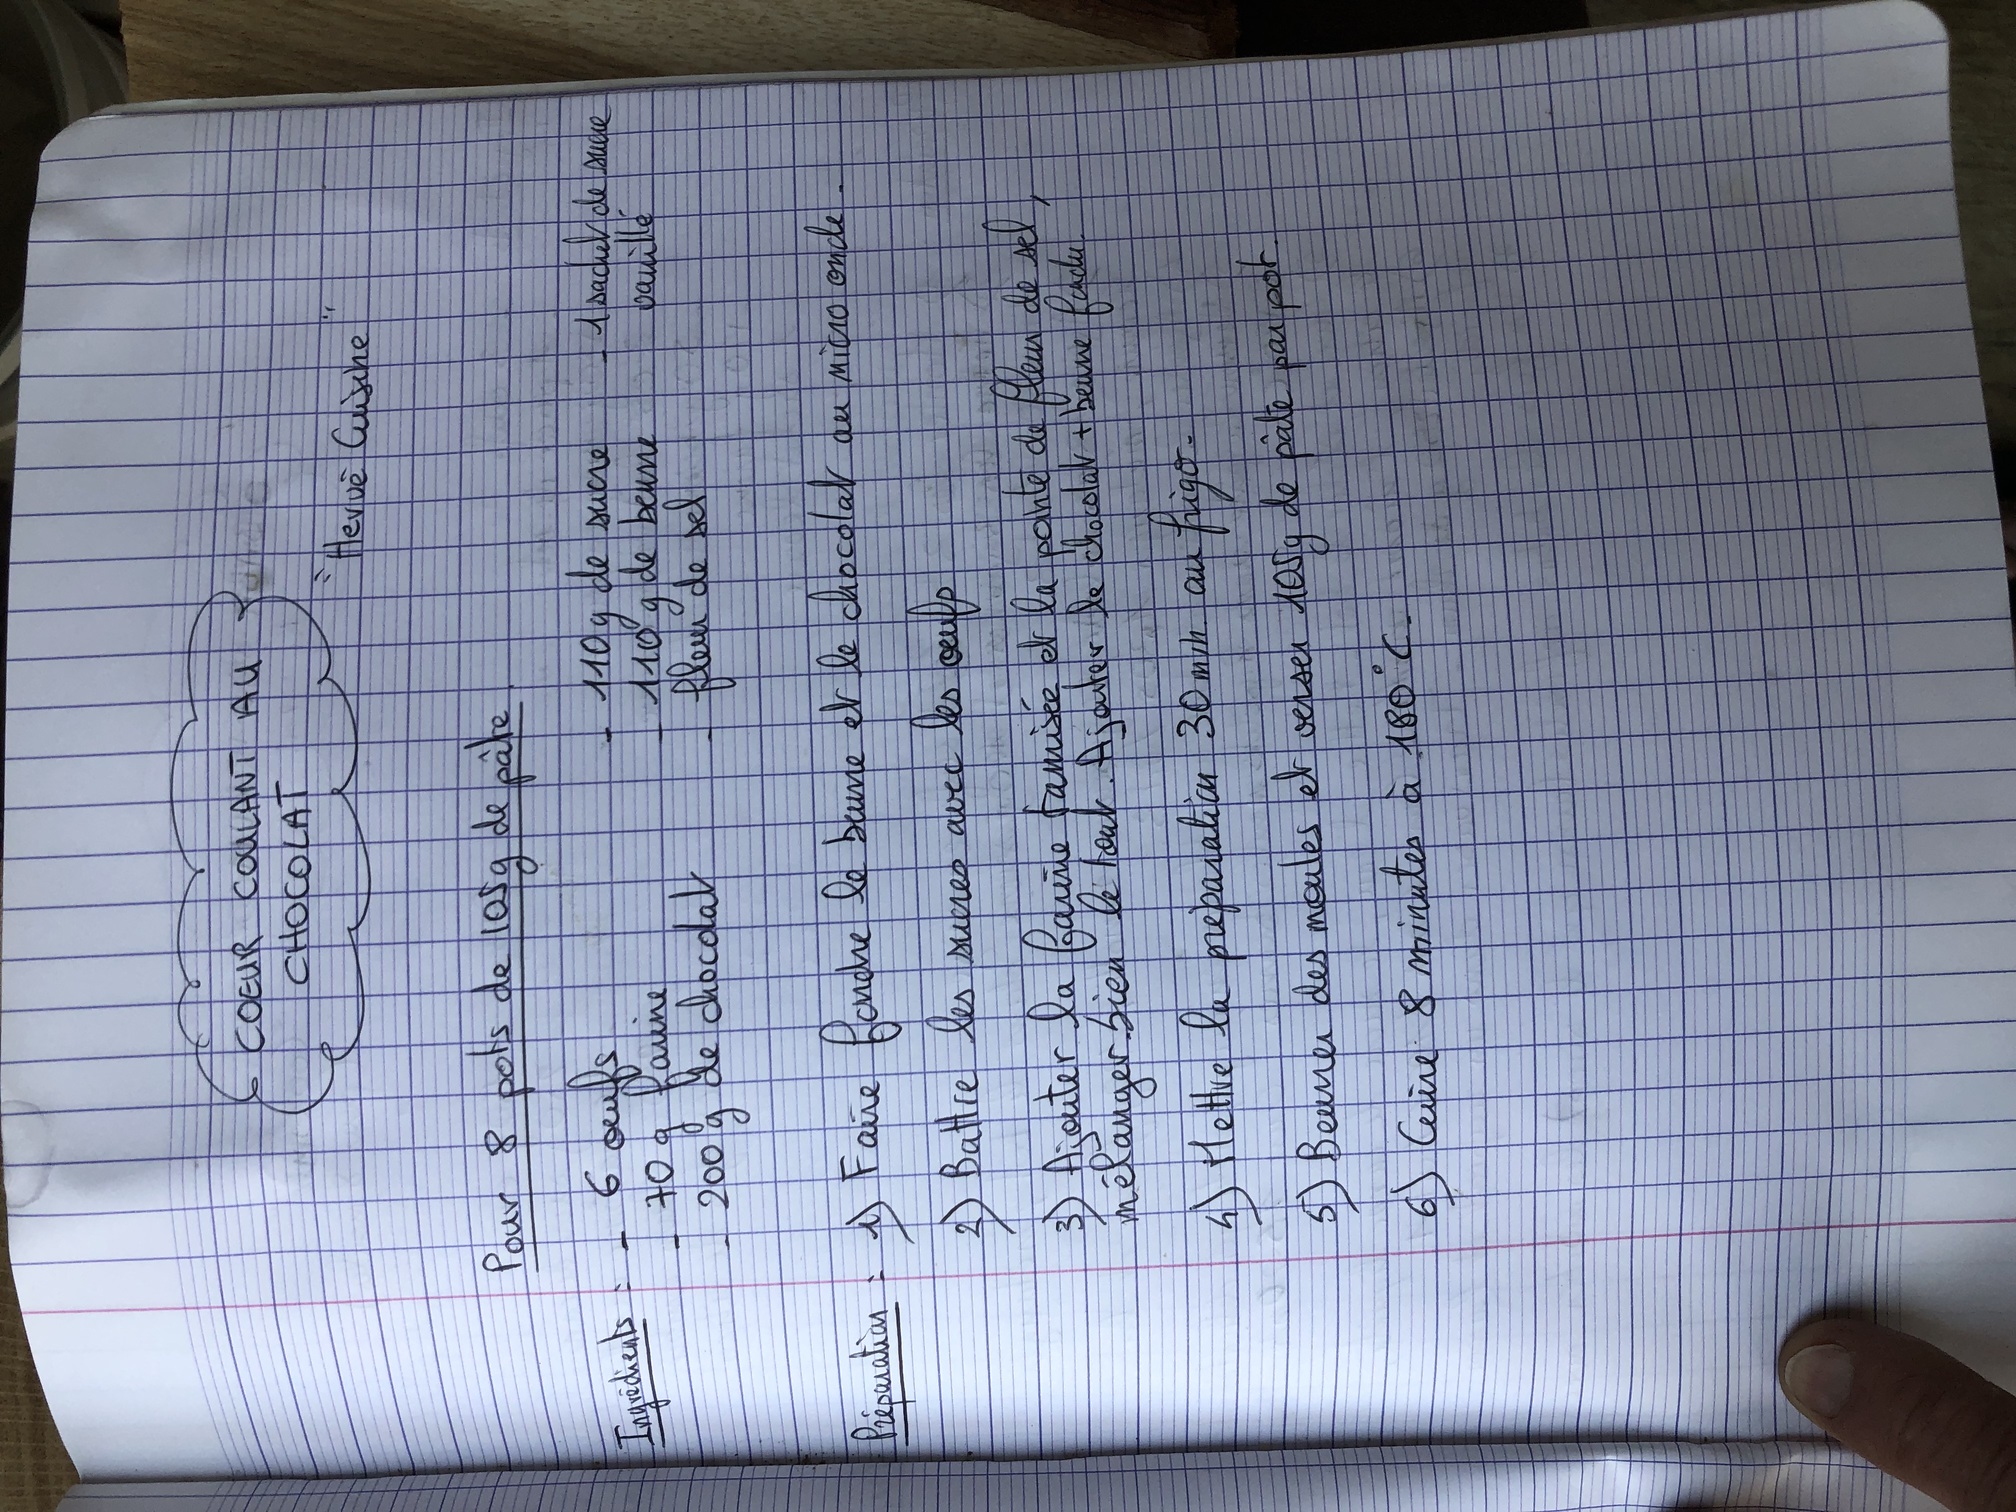 COEUR COULANT AU
CHOCOLAT
"Hervé Cuisine"
Pour 8 pots de 105g de pâte.
Ingrédients : - 6 oeufs
- 70 g farine
- 200 g de chocolat
- 110g de sucre
- 110 g de beurre
- fleur de sel
- 1 sachet de sucre
vanillé
Préparation : 1) Faire fondre le beurre et le chocolat au micro onde.
2) Battre les sucres avec les oeufs
3) Ajouter la farine tamisée et la pointe de fleur de sel,
mélanger bien le tout. Ajouter le chocolat + beurre fondu.
4) Mettre la préparation 30 min au frigo.
5) Beurrer des moules et verser 105g de pâte par pot.
6) Cuire 8 minutes à 180°C.